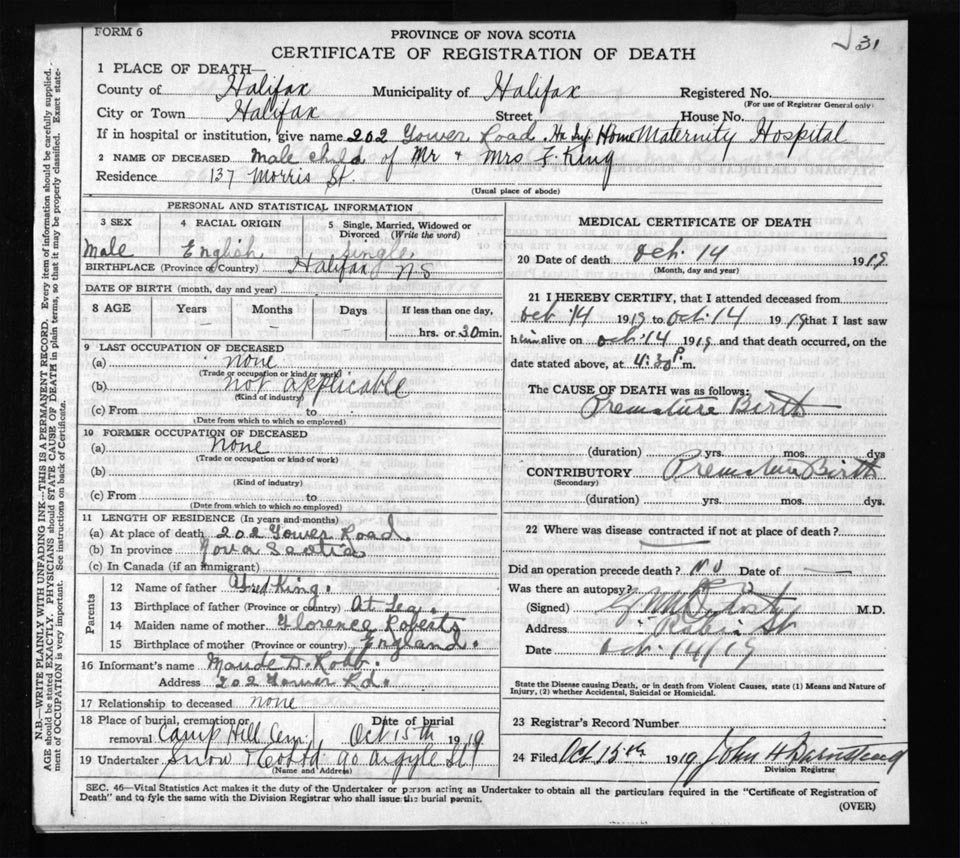 FORM 6
PROVINCE OF NOVA SCOTIA
31
CERTIFICATE OF REGISTRATION OF DEATH
1 PLACE OF DEATH—
County of Halifax Municipality of Halifax Registered No.
(For use of Registrar General only)
City or Town Halifax Street House No.
If in hospital or institution, give name 202 Tower Road Maternity Hospital
2 NAME OF DECEASED Male child of Mr & Mrs F. King
Residence 137 Morris St.
(Usual place of abode)
PERSONAL AND STATISTICAL INFORMATION
3 SEX 4 RACIAL ORIGIN 5 Single, Married, Widowed or Divorced (Write the word)
Male English single
BIRTHPLACE (Province or Country) Halifax NS
DATE OF BIRTH (month, day and year)
8 AGE Years Months Days If less than one day,
hrs. or 30 min.
9 LAST OCCUPATION OF DECEASED
(a) none
(Trade or occupation or kind of work)
(b) not applicable
(Kind of industry)
(c) From to
(Date from which to which so employed)
10 FORMER OCCUPATION OF DECEASED
(a) none
(Trade or occupation or kind of work)
(b)
(Kind of industry)
(c) From to
(Date from which to which so employed)
11 LENGTH OF RESIDENCE (In years and months)
(a) At place of death 202 Tower Road
(b) In province Nova Scotia
(c) In Canada (if an immigrant)
Parents
12 Name of father Fred King.
13 Birthplace of father (Province or country) At Sea.
14 Maiden name of mother Florence Roberts
15 Birthplace of mother (Province or country) England.
16 Informant's name Maude D. Robb.
Address 202 Tower Rd.
17 Relationship to deceased none
18 Place of burial, cremation or removal Camp Hill Cem. Date of burial Oct 15th 1919
19 Undertaker Snow & Co Ltd 90 Argyle St
(Name and Address)
MEDICAL CERTIFICATE OF DEATH
20 Date of death Oct. 14 1919
(Month, day and year)
21 I HEREBY CERTIFY, that I attended deceased from
Oct 14 1919 to Oct. 14 1919 that I last saw
him alive on Oct. 14 1919 and that death occurred, on the
date stated above, at 4:30 P. m.
The CAUSE OF DEATH was as follows:
Premature Birth
(duration) yrs. mos. dys
CONTRIBUTORY Premature Birth
(Secondary)
(duration) yrs. mos. dys.
22 Where was disease contracted if not at place of death?
Did an operation precede death? NO Date of
Was there an autopsy?
(Signed) M.D.
Address St
Date Oct. 14/19
State the Disease causing Death, or in death from Violent Causes, state (1) Means and Nature of
Injury, (2) whether Accidental, Suicidal or Homicidal.
23 Registrar's Record Number
24 Filed Oct 15th 1919 John H Barnstead
Division Registrar
SEC. 46—Vital Statistics Act makes it the duty of the Undertaker or person acting as Undertaker to obtain all the particulars required in the "Certificate of Registration of
Death" and to fyle the same with the Division Registrar who shall issue the burial permit.
(OVER)
N.B.—WRITE PLAINLY WITH UNFADING INK—THIS IS A PERMANENT RECORD. Every item of information should be carefully supplied.
AGE should be stated EXACTLY. PHYSICIANS should STATE CAUSE OF DEATH in plain terms, so that it may be properly classified. Exact state-
ment of OCCUPATION is very important. See instructions on back of Certificate.